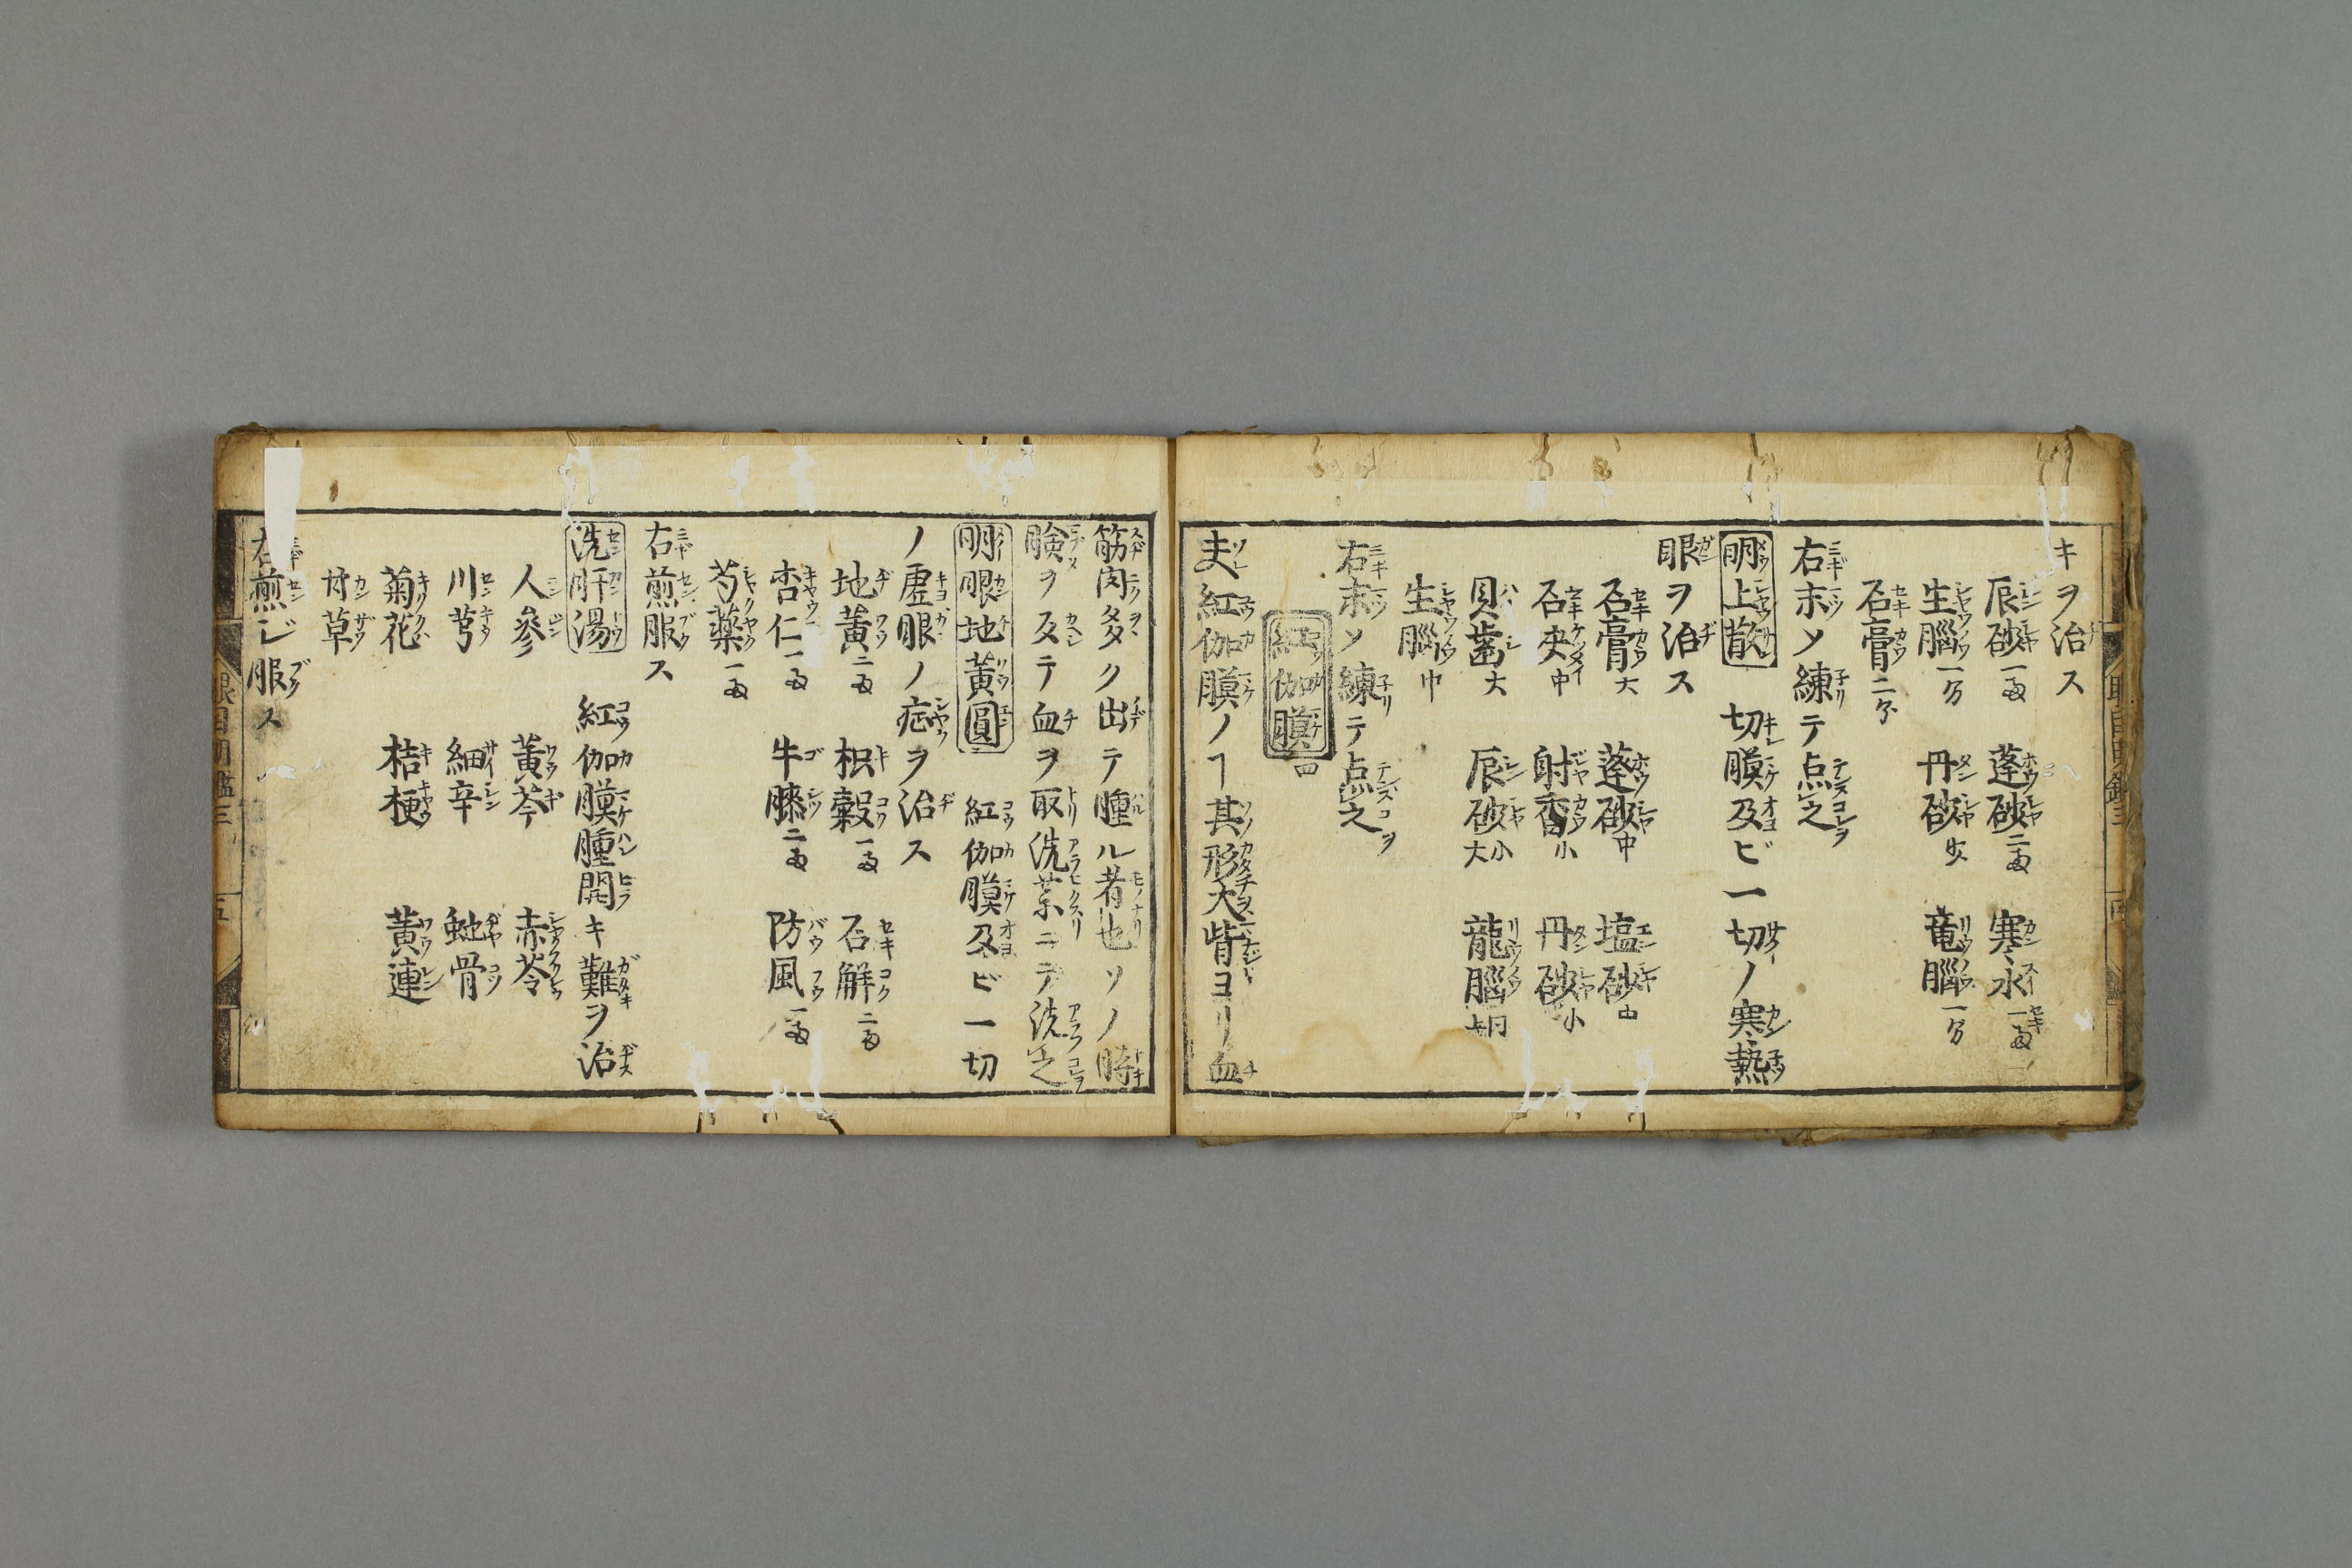 キヲ治ス
辰砂一両 蓬砂二両 寒水一両
生脳一匁 丹砂歩 竜脳一匁
石膏二分
右末ソ練テ点之
明上散 切膜及ビ一切ノ寒熱
眼ヲ治ス
石膏大 蓬砂中 塩砂中
石决中 射香小 丹砂小
貝歯大 辰砂大小 龍脳
生脳中
右末ソ練テ点之
紅伽膜四
夫紅伽膜ノヿ其形大眥ヨリ血
筋肉多ク出テ腫ル者也ソノ時
瞼ヲ反テ血ヲ取洗薬ニテ洗之
明眼地黄圓 紅伽膜及ビ一切
ノ虚眼ノ症ヲ治ス
地黄二両 枳穀一両 石解二両
杏仁一両 牛膝二両 防風一両
芍薬一両
右煎服ス
洗肝湯 紅伽膜腫開キ難ヲ治
人參 黄芩 赤苓
川芎 細辛 蛇骨
菊花 桔梗 黄連
甘草
右煎ジ服ス